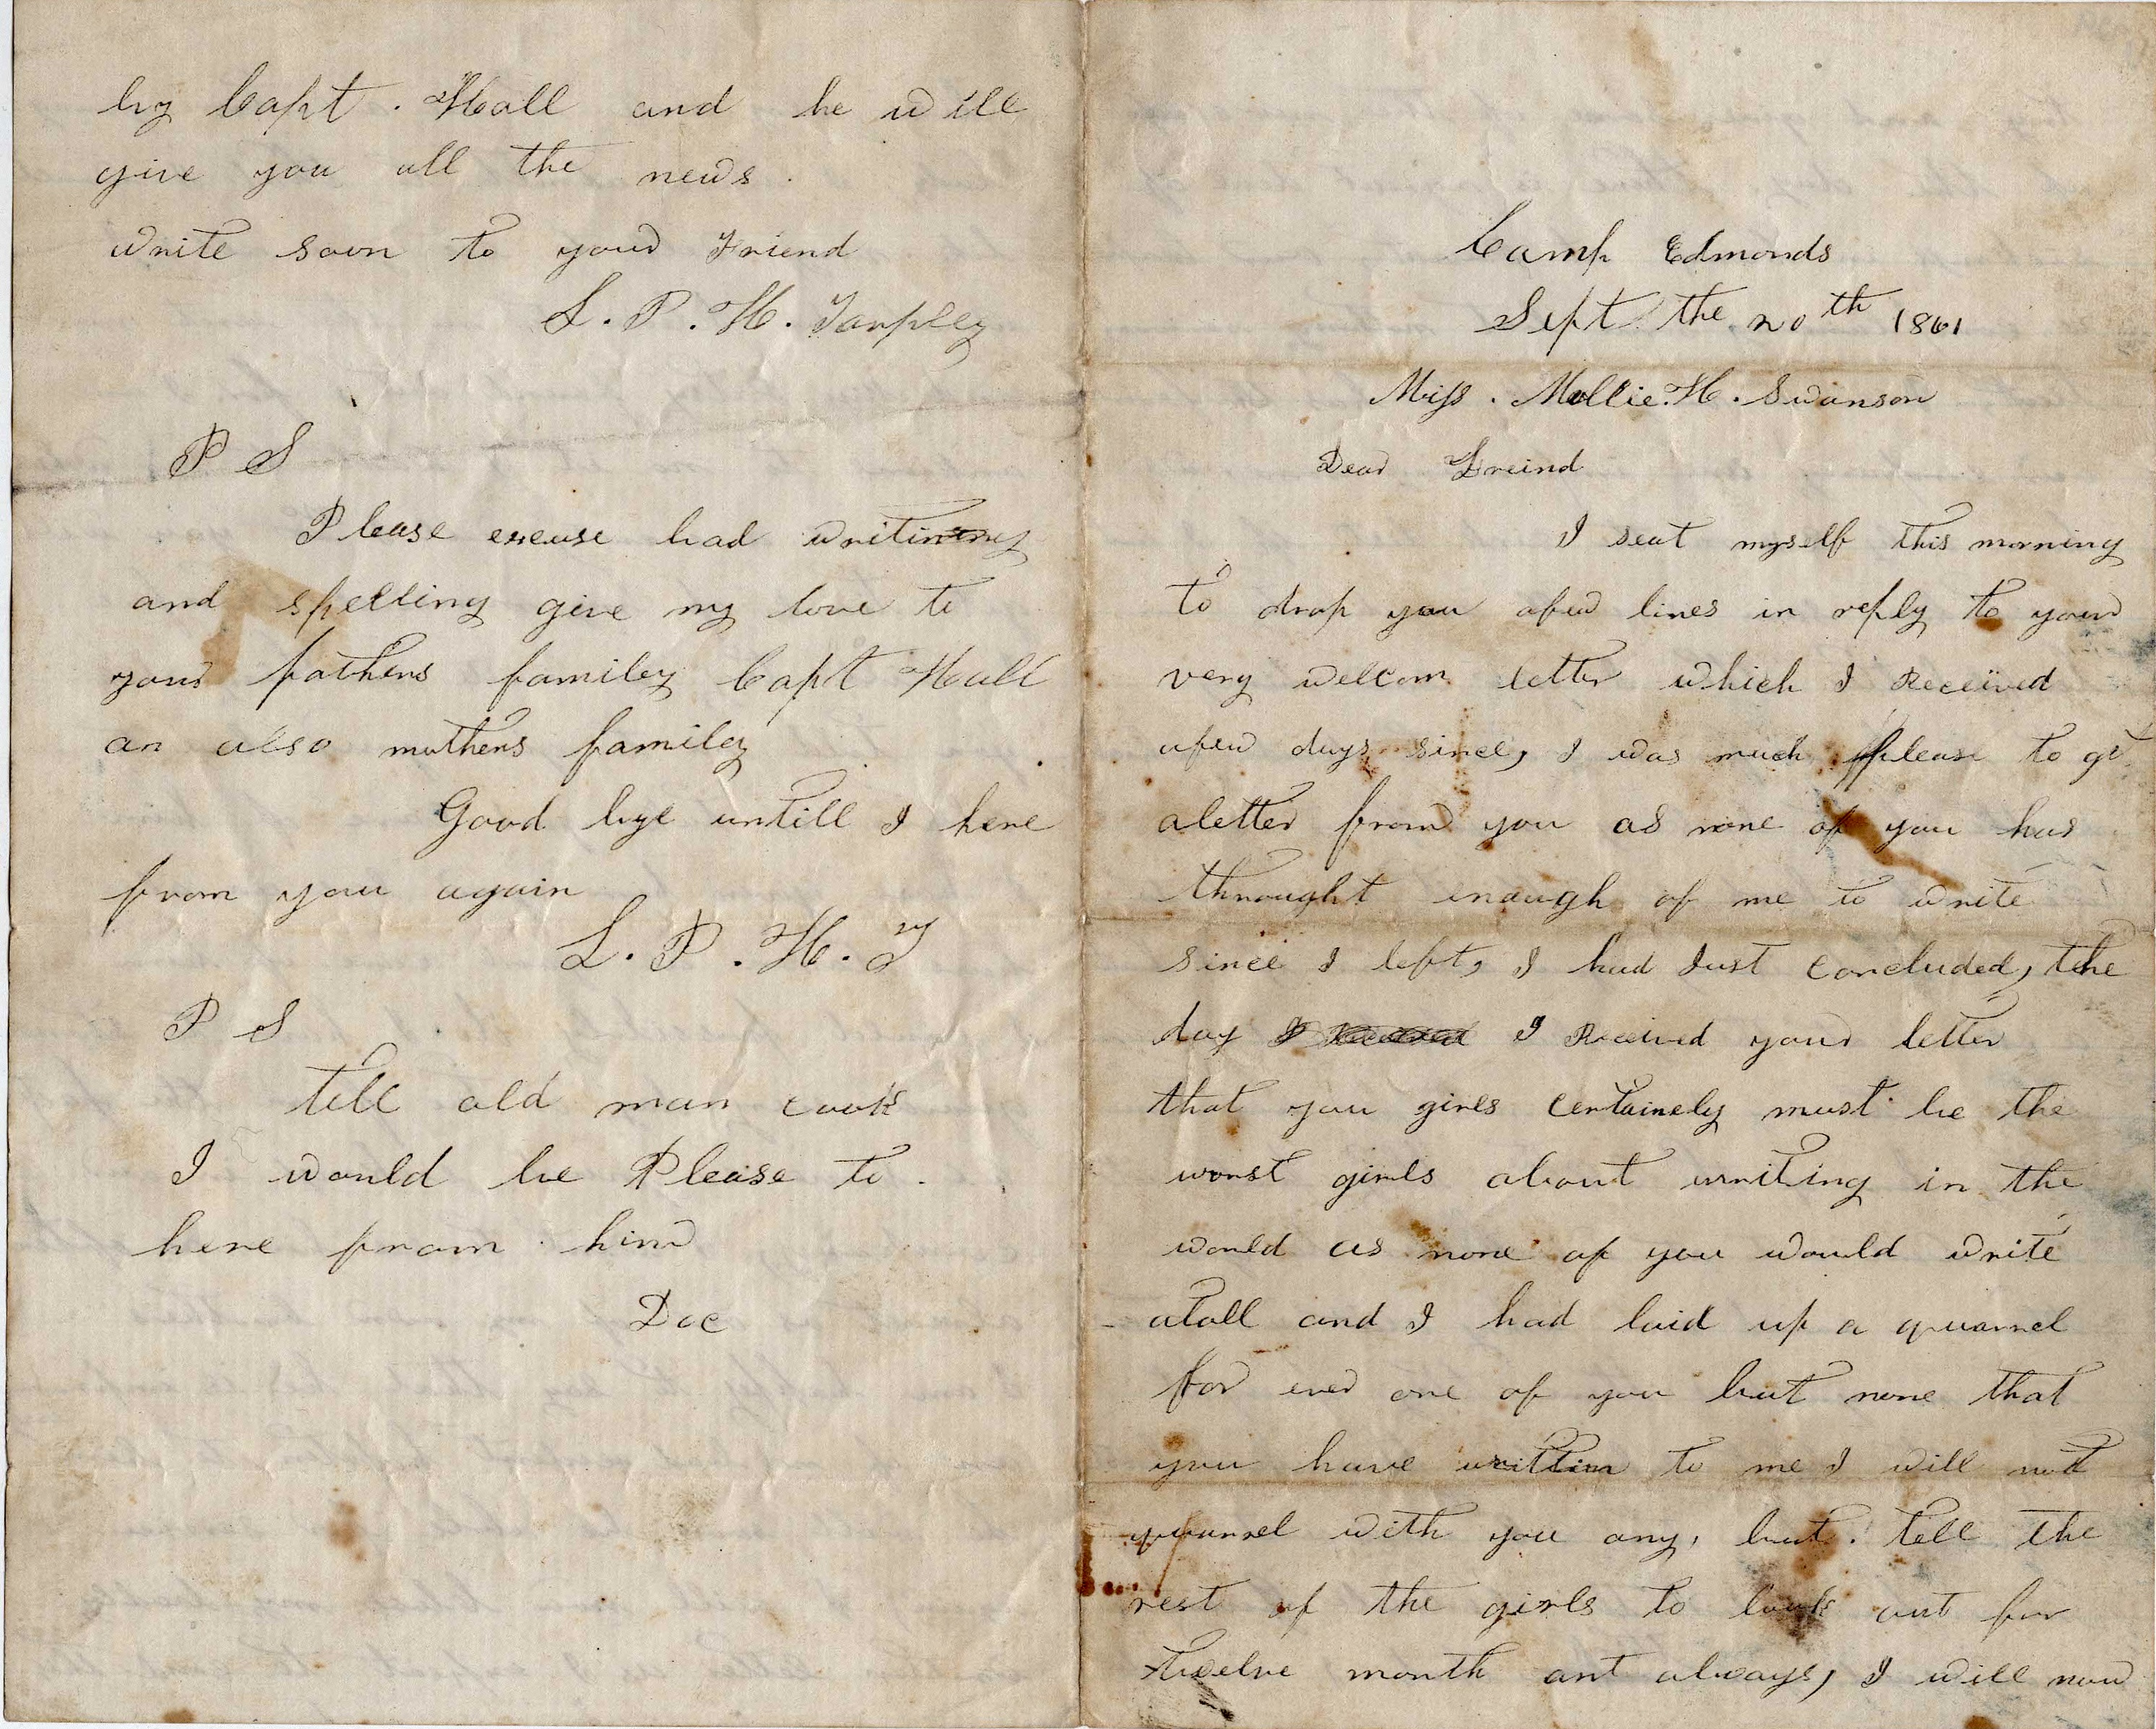 Camp Edmonds
Sept. the 20th 1861
Miss. Mollie. H. Swanson
Dear Freind
I seat myself this morning
to drop you afew lines in reply to your
very welcom letter which I Received
afew days since, I was much please to get
aletter from you as none of you has
throught enough of me to write
since I left, I had Just concluded, the
day I Received your letter
that you girls certainely must be the
worst girls about writing in the
world as none of you would write
atall and I had laid up a quarrel
for ever one of you but none that
you have written to me I will not
quarrel with you any, but. tell the
rest of the girls to look out for
twelve month ant always, I will now
by Capt. Hall and he will
give you all the news.
write soon to your Friend
L. P. H. Tarpley
P S
Please excuse bad writing
and spelling give my love to
your fathers family Capt Hall
an also mothers family
Good bye untill I here
from you again
L. P. H. T
P S
tell old man cook
I would be Please to.
here from him
Doc